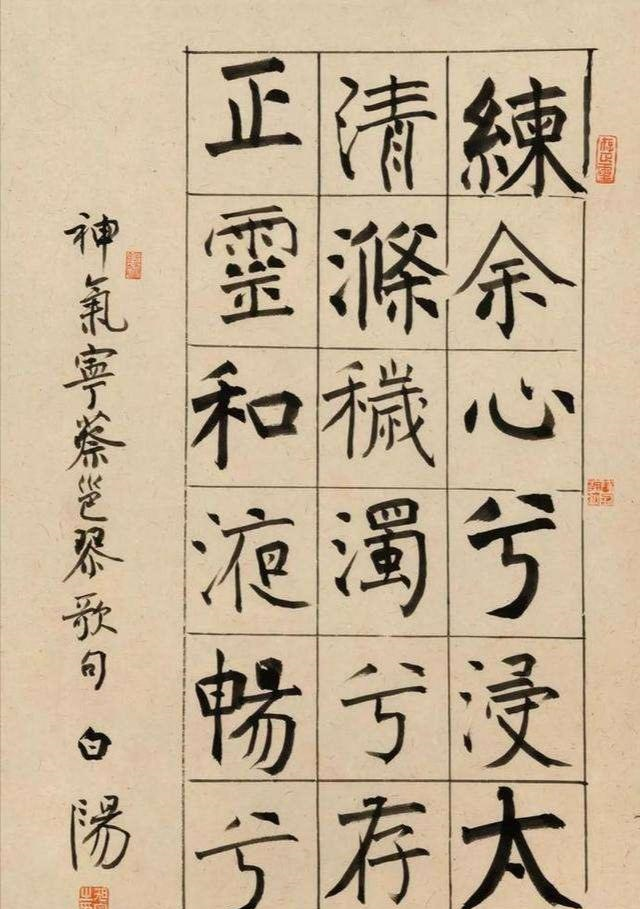 練余心兮浸太
清滌穢濁兮存
正靈和液暢兮
神氣寧蔡邕琴歌句 白陽